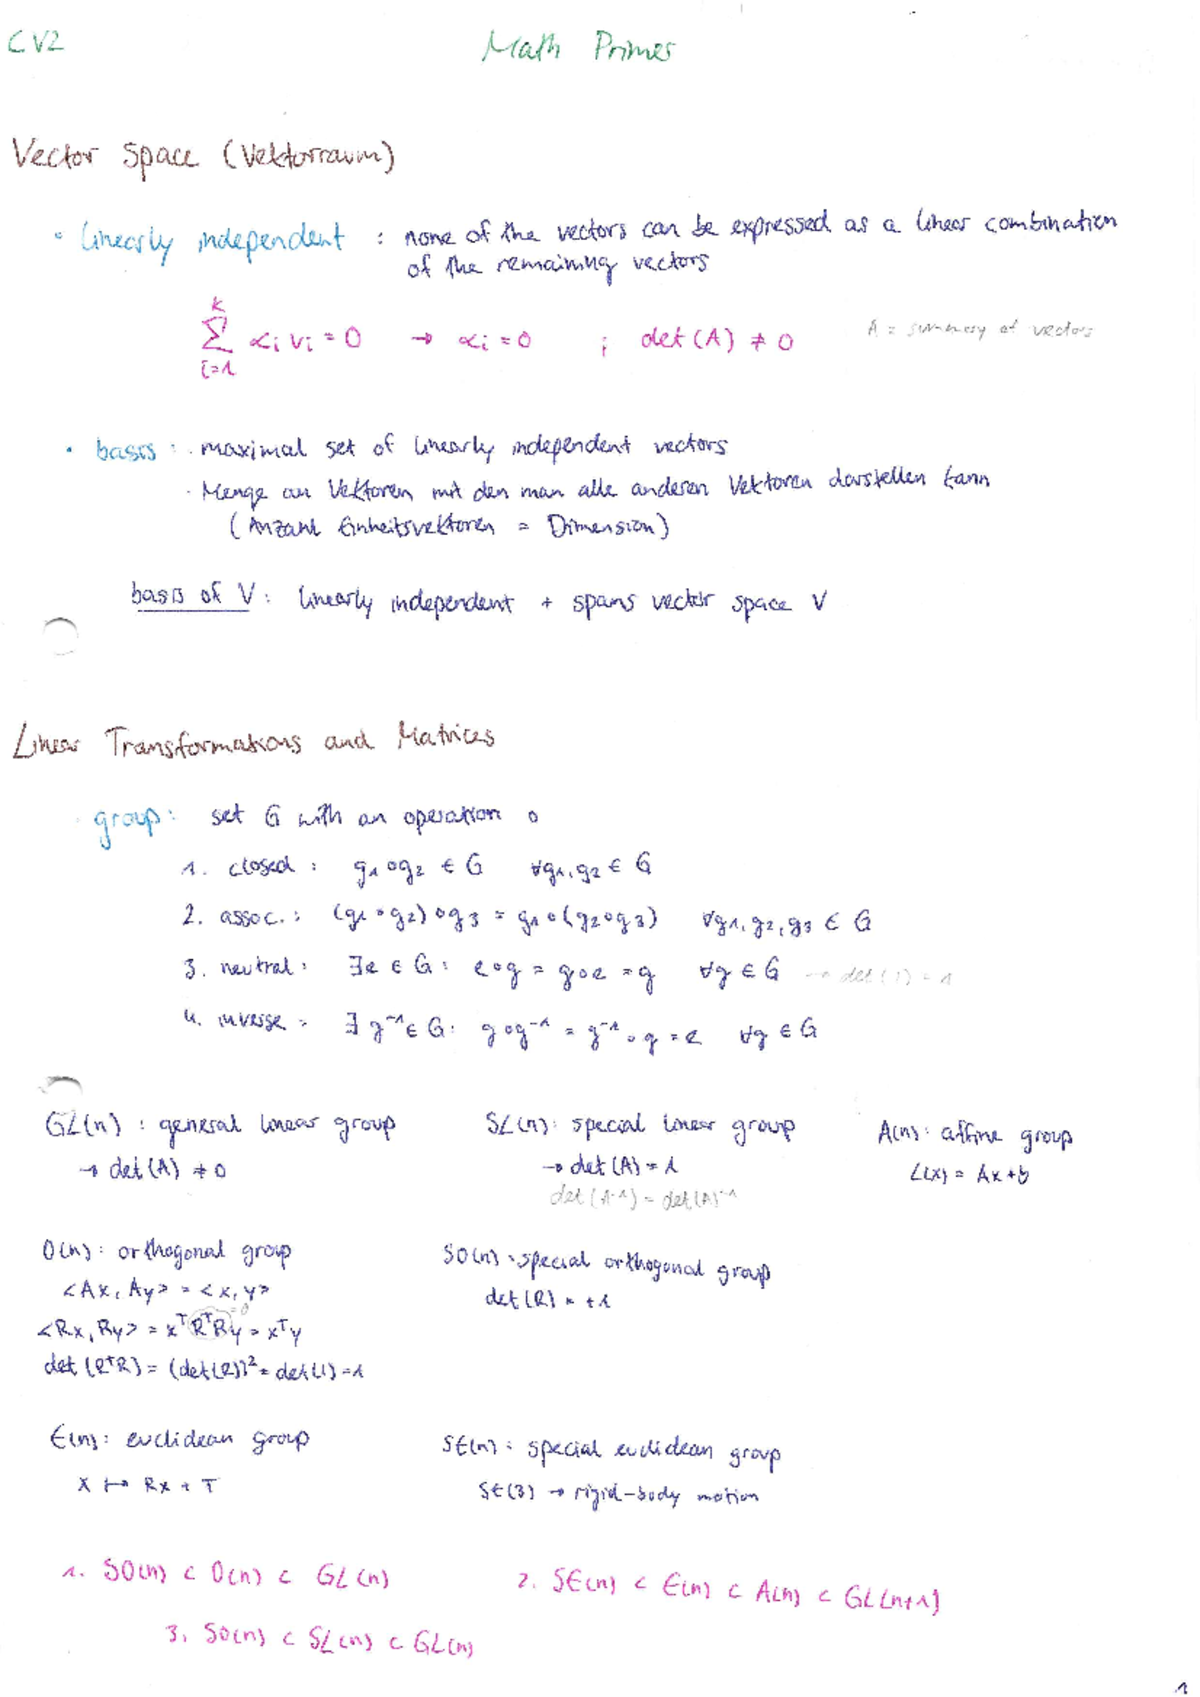 CV2
Math Primer
Vector Space (Vektorraum)
• linearly independent : none of the vectors can be expressed as a linear combination
of the remaining vectors
∑_{i=1}^{k} αi vi = 0 → αi = 0 ; det(A) ≠ 0 A = summary of vectors
• basis : · maximal set of linearly independent vectors
· Menge an Vektoren mit den man alle anderen Vektoren darstellen kann
(Anzahl Einheitsvektoren = Dimension)
basis of V : linearly independent + spans vector space V
Linear Transformations and Matrices
· group : set G with an operation ∘
1. closed : g1 ∘ g2 ∈ G ∀g1, g2 ∈ G
2. assoc. : (g1 ∘ g2) ∘ g3 = g1 ∘ (g2 ∘ g3) ∀g1, g2, g3 ∈ G
3. neutral : ∃e ∈ G : e ∘ g = g ∘ e = g ∀g ∈ G → det(I) = 1
4. inverse : ∃ g⁻¹ ∈ G : g ∘ g⁻¹ = g⁻¹ ∘ g = e ∀g ∈ G
GL(n) : general linear group SL(n) : special linear group A(n) : affine group
→ det(A) ≠ 0 → det(A) = 1 L(x) = Ax + b
det(A⁻¹) = det(A)⁻¹
O(n) : orthogonal group SO(n) : special orthogonal group
<Ax, Ay> = <x, y> det(R) = +1
<Rx, Ry> = xᵀRᵀRy = xᵀy
det(RᵀR) = (det(R))² = det(I) = 1
E(n) : euclidean group SE(n) : special euclidean group
x ↦ Rx + T SE(3) → rigid-body motion
1. SO(n) ⊂ O(n) ⊂ GL(n) 2. SE(n) ⊂ E(n) ⊂ A(n) ⊂ GL(n+1)
3. SO(n) ⊂ SL(n) ⊂ GL(n)
1